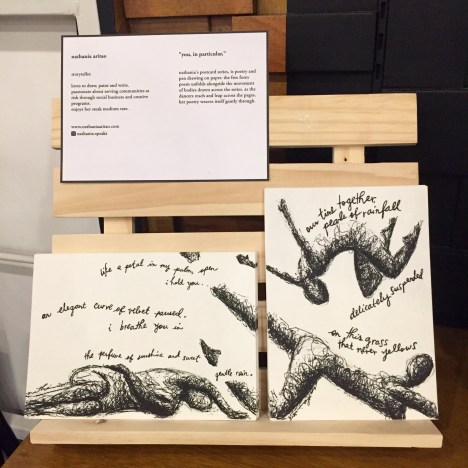 nethania aritao
"you, in particular."
storyteller.
loves to draw, paint and write.
passionate about serving communities at
risk through social business and creative
programs.
enjoys her steak medium rare.
www.nethaniaaritao.com
nethania.speaks
nethania's postcard series, is poetry and
pen drawing on paper. the free form
poem unfolds alongside the movement
of bodies drawn across the series. as the
dancers reach and leap across the pages,
her poetry weaves itself gently through.
like a petal in my palm, open
i hold you.
an elegant curve of velvet pursed.
i breathe you in
the perfume of sunshine and sweet
gentle rain.
our time together,
people of rainfall
delicately suspended
on this grass
that never yellows